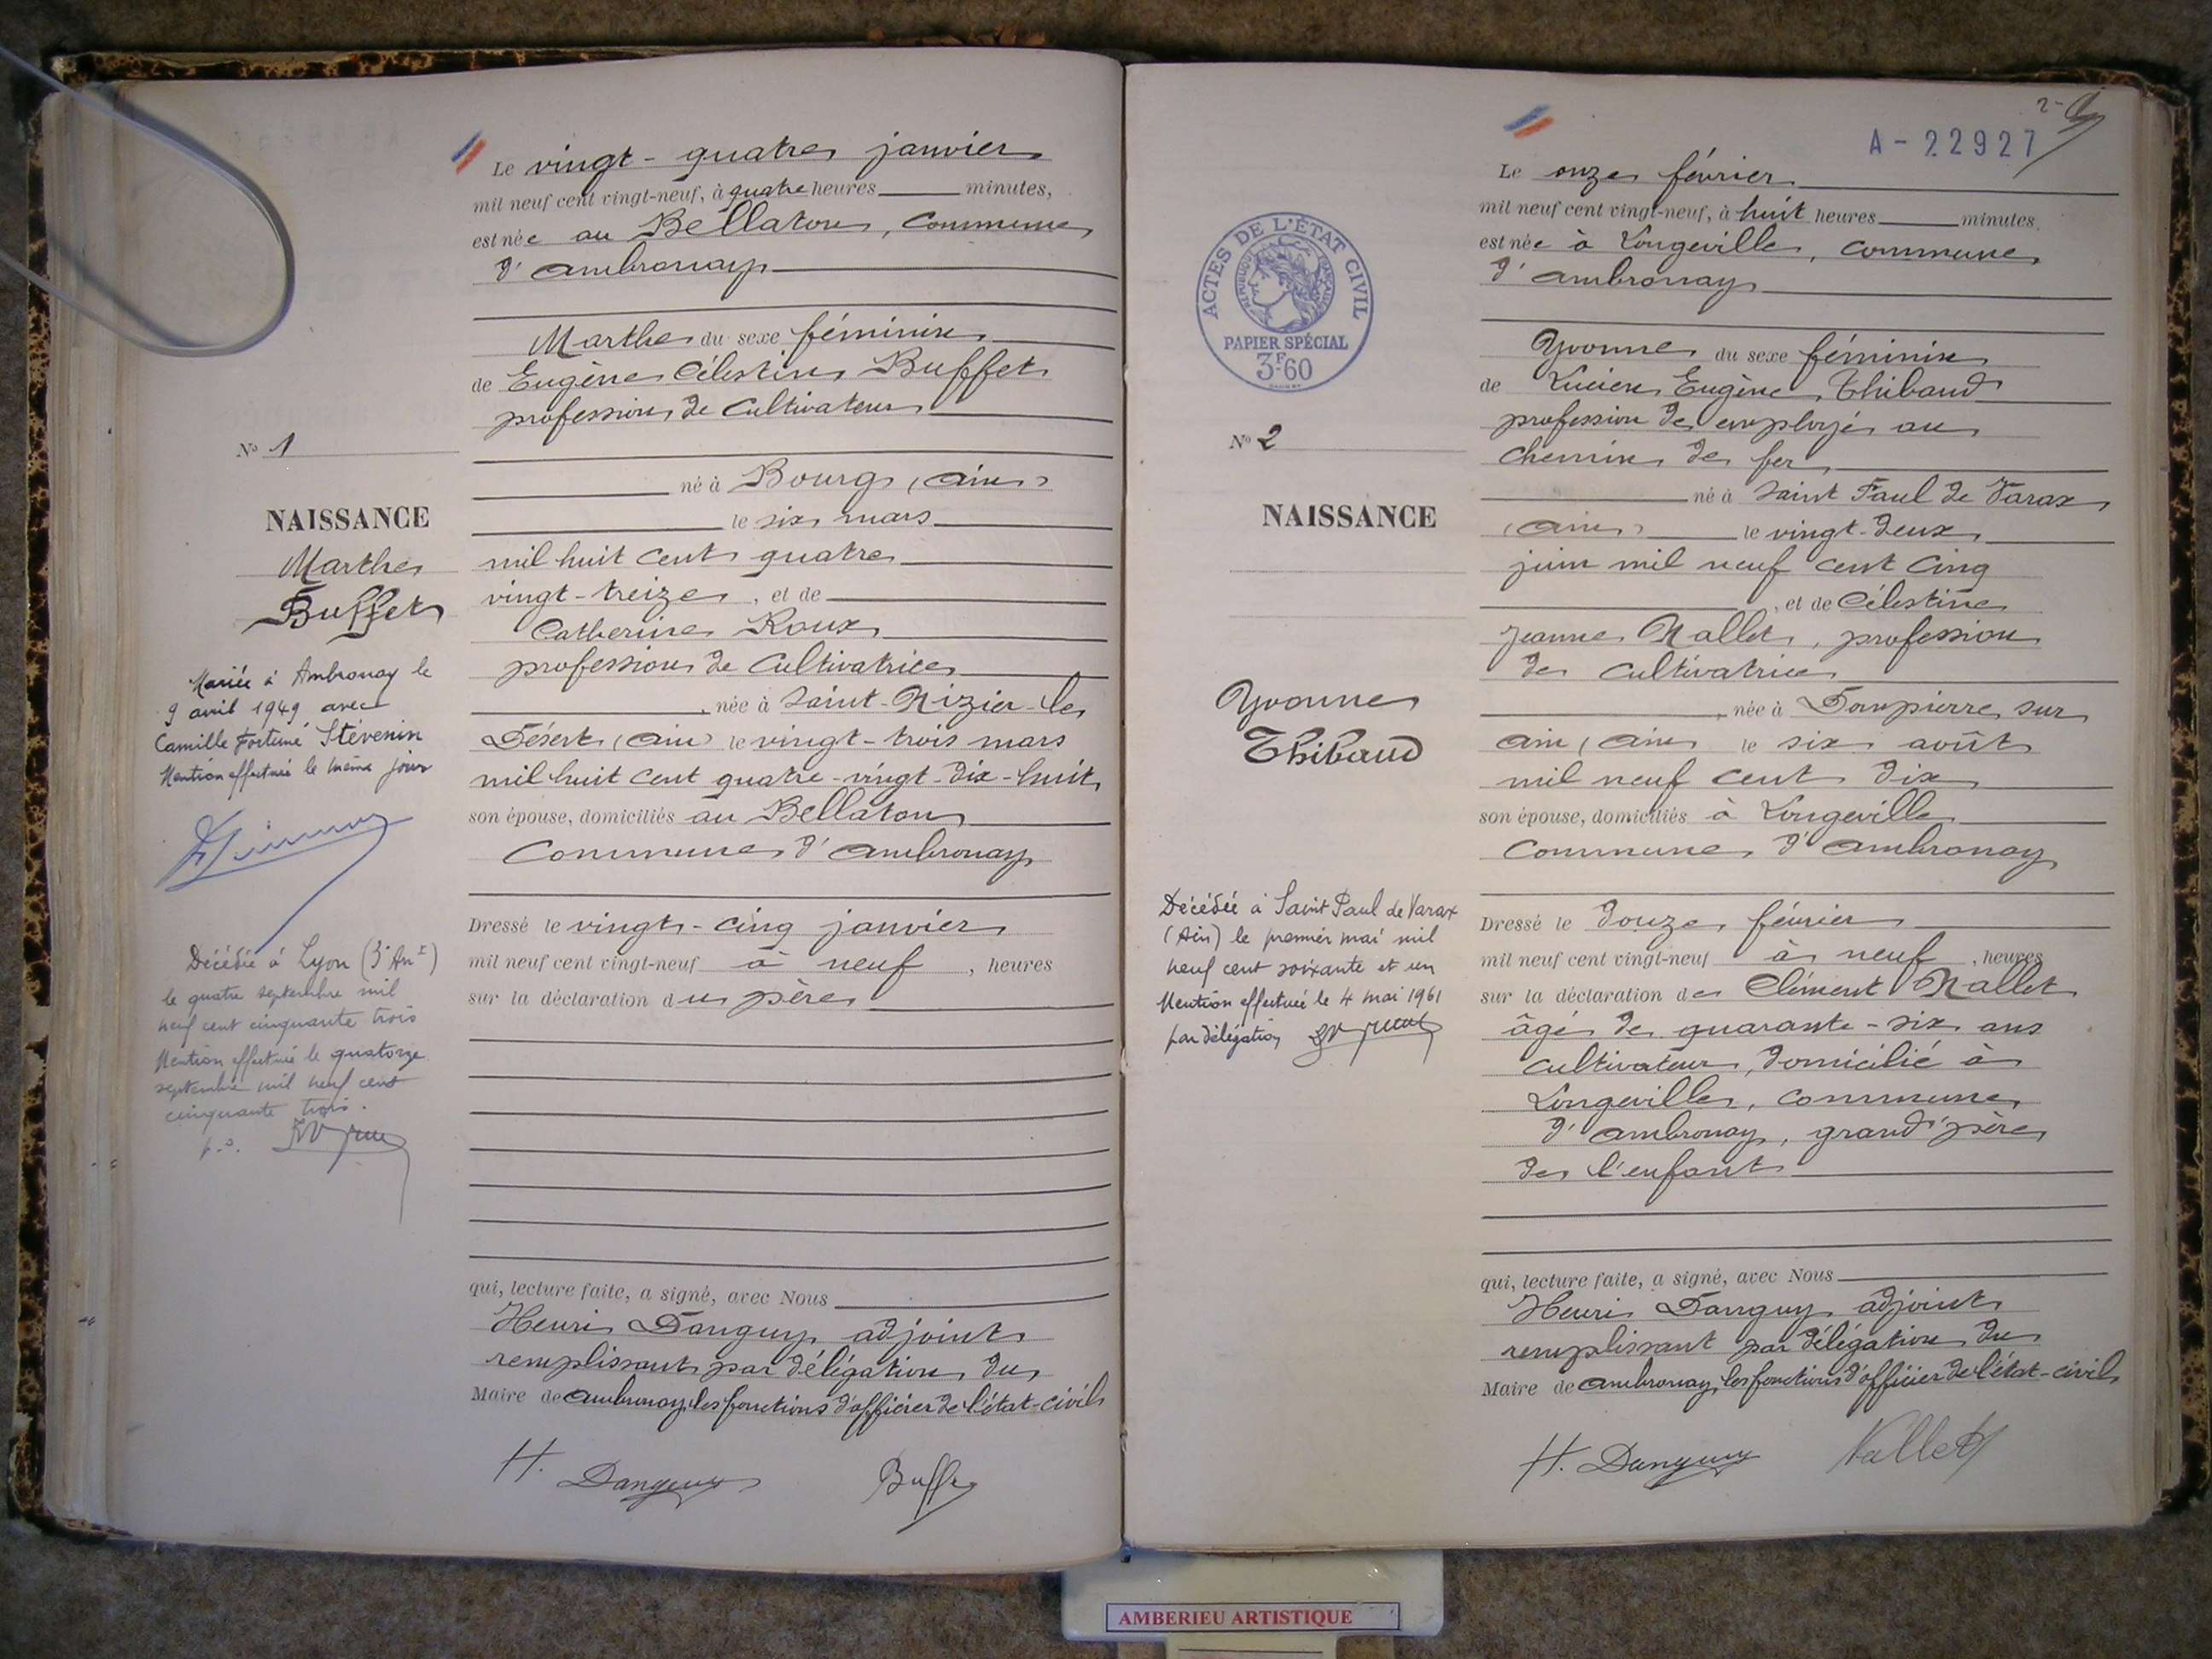 Le vingt-quatre janvier
mil neuf cent vingt-neuf, à quatre heures minutes,
est née au Bellaton, commune
d'Ambronay
Marthe du sexe féminin
de Eugène Célestin Buffet
profession de cultivateur
né à Bourg (Ain)
le six mars
mil huit cent quatre
vingt-treize, et de
Catherine Roux
profession de cultivatrice
, née à Saint-Nizier-le
Désert (Ain) le vingt-trois mars
mil huit cent quatre-vingt-dix-huit
son épouse, domiciliés au Bellaton
commune d'Ambronay
Dressé le vingt-cinq janvier
mil neuf cent vingt-neuf à neuf, heures
sur la déclaration du père
qui, lecture faite, a signé, avec Nous
Henri Danguy adjoint
remplissant par délégation du
Maire de Ambronay, les fonctions d'officier de l'état-civil
H. Danguy Buffet
No 1
NAISSANCE
Marthe
Buffet
Mariée à Ambronay le
9 avril 1949 avec
Camille Fortuné Stévenin
Mention effectuée le même jour
Décédée à Lyon (3e Arrt)
le quatre septembre mil
neuf cent cinquante trois
Mention effectuée le quatorze
septembre mil neuf cent
cinquante trois.
p.d.
2
A-22927
Le onze février
mil neuf cent vingt-neuf, à huit heures minutes.
est née à Longeville, commune
d'Ambronay
Yvonne du sexe féminin
de Lucien Eugène Thibaud
profession de employé au
chemin de fer
né à Saint Paul de Varax
(Ain) le vingt-deux
juin mil neuf cent cinq
, et de Célestine
Jeanne Nallet, profession
de cultivatrice
, née à Dompierre sur
Ain (Ain) le six août
mil neuf cent dix
son épouse, domiciliés à Longeville
commune d'Ambronay
Dressé le douze février
mil neuf cent vingt-neuf à neuf, heures
sur la déclaration de Clément Nallet
âgé de quarante-six ans
cultivateur, domicilié à
Longeville, commune
d'Ambronay, grand'père
de l'enfant
qui, lecture faite, a signé, avec Nous
Henri Danguy adjoint
remplissant par délégation du
Maire de Ambronay, les fonctions d'officier de l'état-civil
H. Danguy Nallet
ACTES DE L'ÉTAT CIVIL
RÉPUBLIQUE FRANÇAISE
PAPIER SPÉCIAL
3F.60
No 2
NAISSANCE
Yvonne
Thibaud
Décédée à Saint Paul de Varax
(Ain) le premier mai mil
neuf cent soixante et un
Mention effectuée le 4 mai 1961
par délégation
AMBERIEU ARTISTIQUE